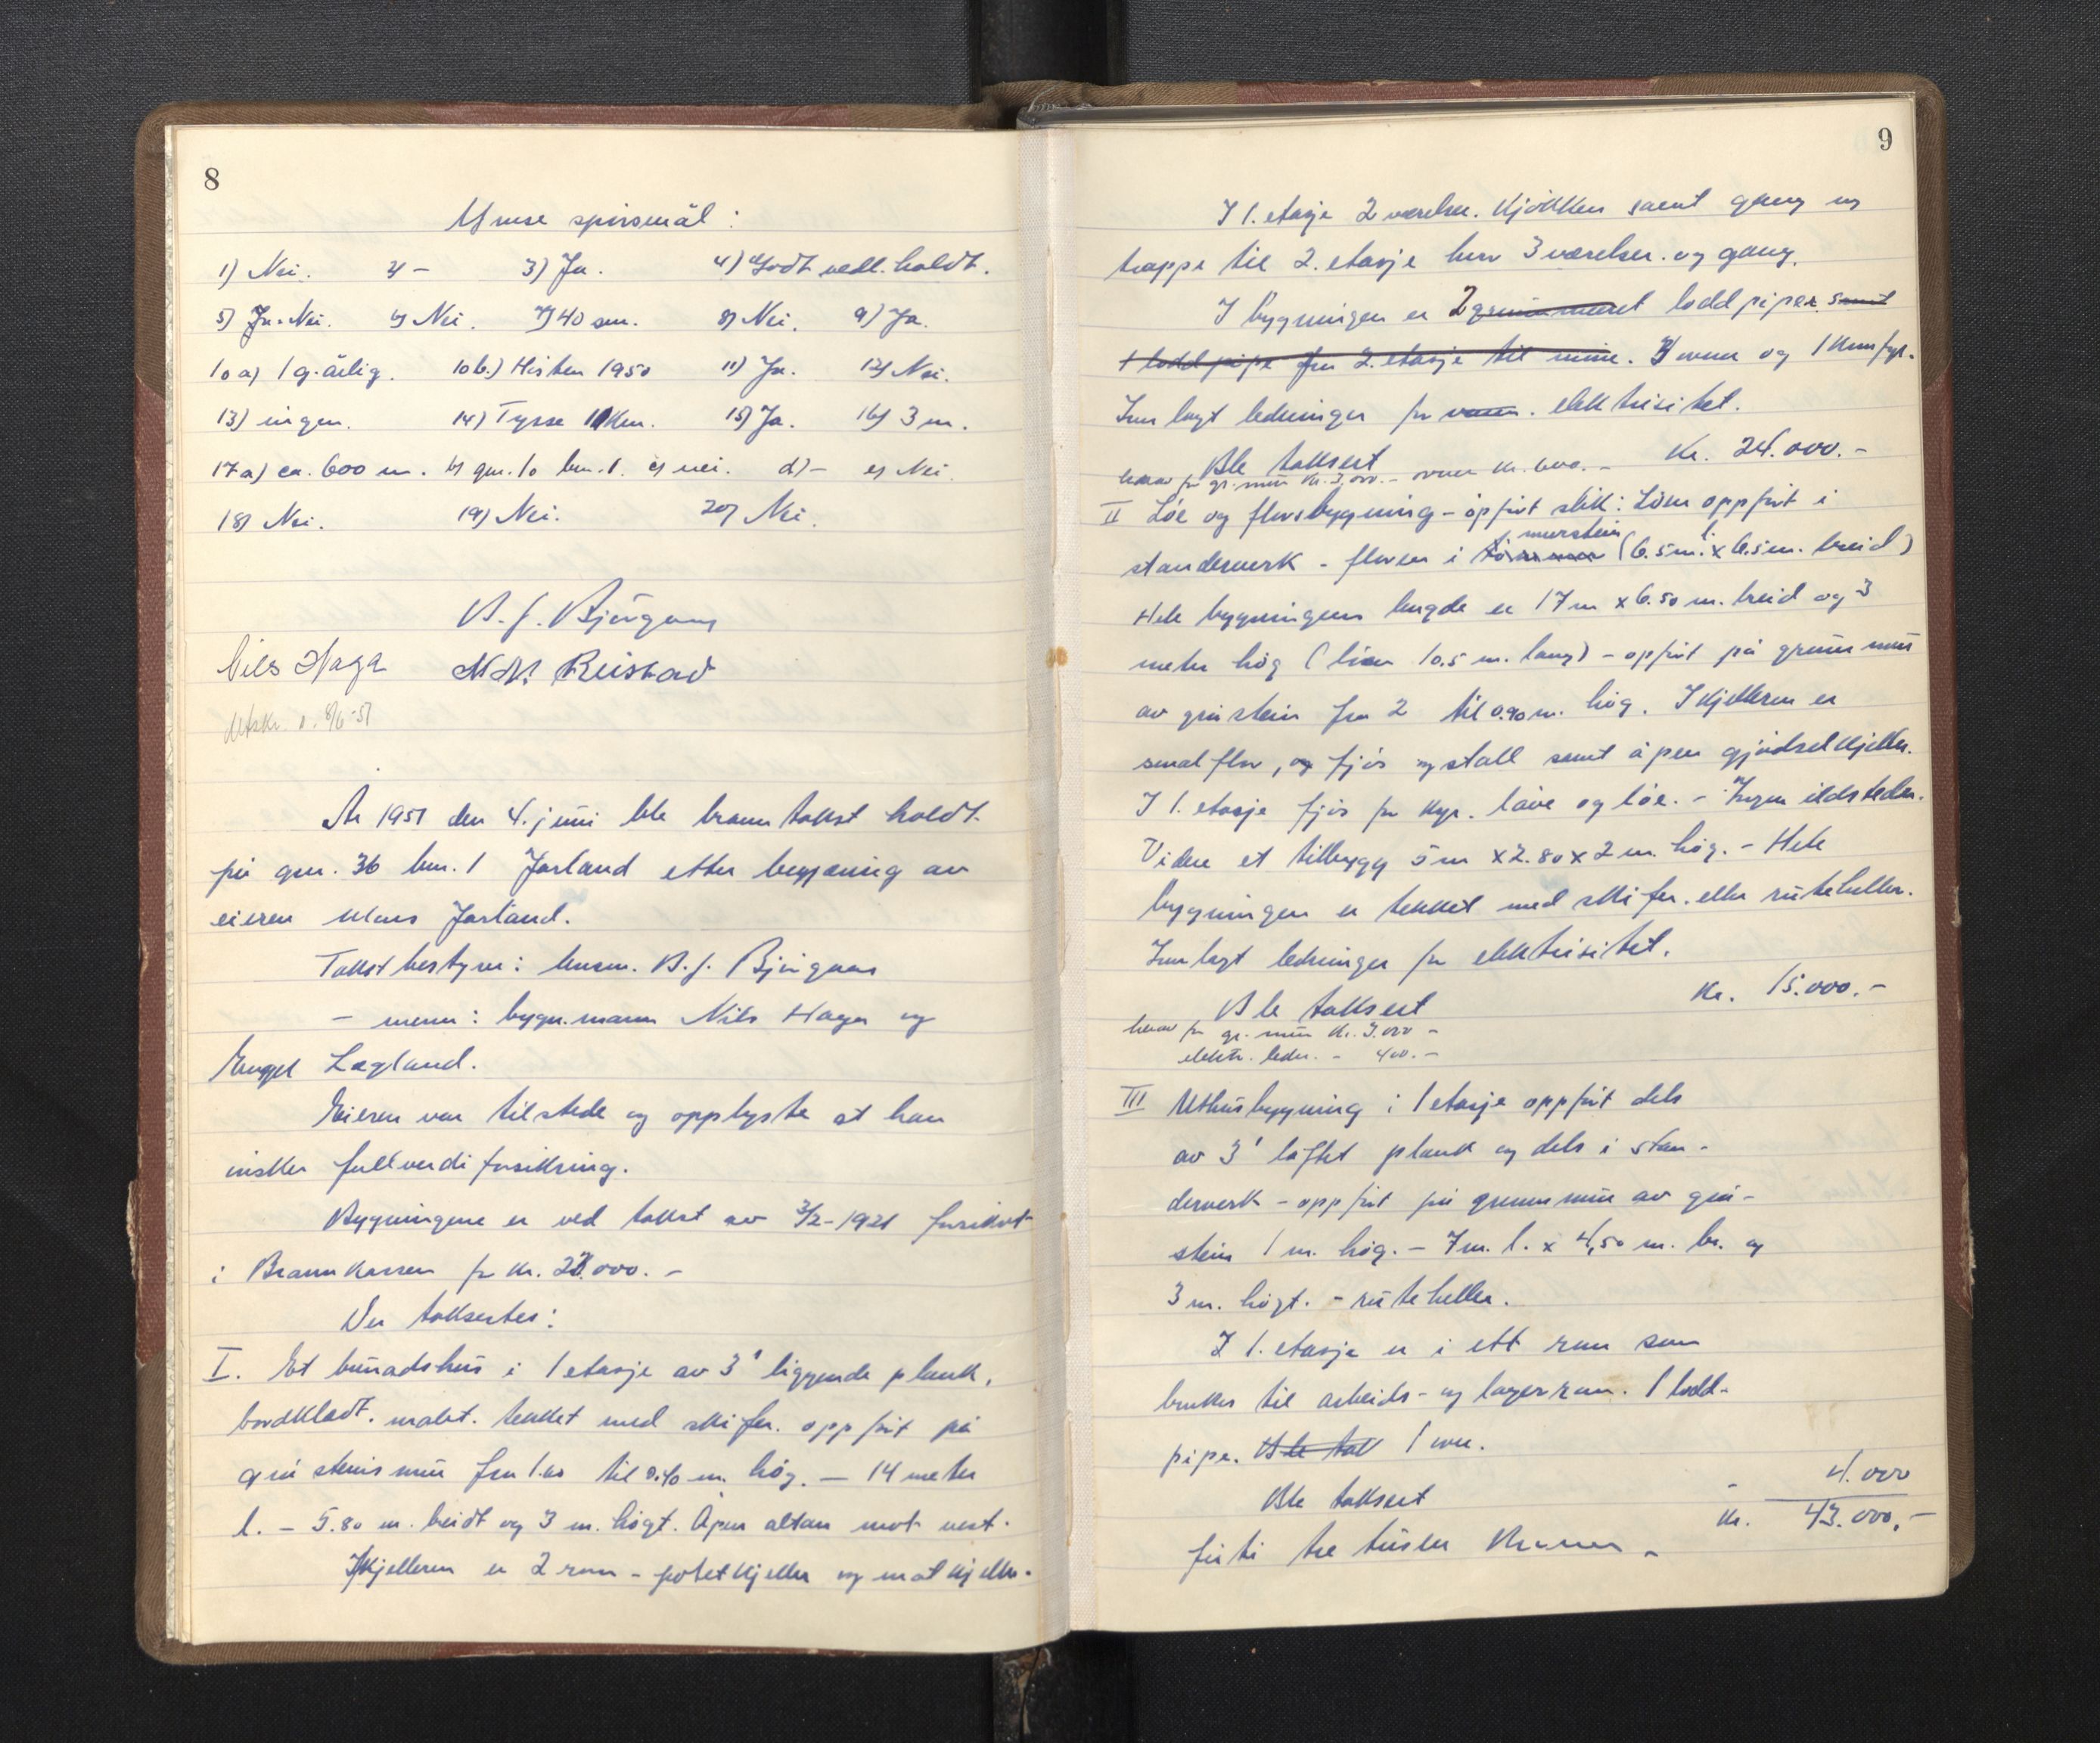 8
Ymse spörsmål:
1) Nei. 2) - 3) Ja. 4) Godt vedl.holdt.
5) Ja. Nei. 6) Nei. 7) 40 sm. 8) Nei. 9) Ja.
10 a) 1 g. årlig. 10 b.) Hösten 1950 11) Ja. 12) Nei.
13) ingen. 14) Tysse 11 km. 15) Ja. 16) 3 m.
17 a) ca. 600 m. b) gnr. 10 bnr. 1. c) nei. d) - e) Nei
18) Nei. 19) Nei. 20) Nei.
B. J. Björgum
Nils Haga N. N. Reistad
Utskr. s. 8/6-51
År 1951 den 4. juni ble branntakst holdt
på gnr. 36 bnr. 1 Jarland etter begjæring av
eieren Jarland.
Takstbestyrer: lensm. B. J. Björgum
- menn: bygn.mann Nils Haga og
Engel Lægland.
Eieren var tilstede og opplyste at han
önsker fullverdiforsikring.
Bygningene er ved takst av 3/2-1921 forsikret
i Brannkassen for kr. 23.000.-
Der takseres:
I. Et bunadshus i 1 etasje av 3" liggende plank,
bordkledt. malt. tekket med skifer. oppfört på
gråsteinsmur fra 1.60 til 0.40 m. hög. - 14 meter
l. - 5.80 m. beidt og 3 m. högt. Åpen altan mot vest.
I kjelleren er 2 rom - potetkjeller og matkjeller.
9
I 1. etasje 2 værelser. Kjökken samt gang og
trappe til 2. etasje hvor 3 værelser og gang.
I bygningen er 2 grunnmuret loddpiper. samt
1 loddpipe fra 2. etasje til mine. 3 ovner og 1 komfyr.
Innlagt ledninger for elektrisitet.
Ble taksert Kr. 24.000.-
herav for gr. mur kr. 3.000.- ovner kr. 600.-
II Löe og florsbygning - oppfört slik: Löen oppfört i
murstein
standerverk - floren i (6.5 m. l. x 6.5 m. breid)
Hele bygningens lengde er 17 m x 6.50 m. breid og 3
meter hög (löen 10.5 m. lang) - oppfört på grunnmur
av gråstein fra 2 til 0.90 m. hög. I kjelleren er
smalflor, og fjös og stall samt åpen gjödselkjeller.
I 1. etasje fjös for kyr. låve og löe. - Ingen ildsteder.
Videre et tilbygg 5 m x 2.80 x 2 m. hög. - Hele
bygningen er tekket med skifer. eller ruteheller.
Innlagt ledninger for elektrisitet.
Ble taksert Kr. 15.000.-
herav for gr. mur kr. 3.000 -
elektr. ledn. - 400.-
III Uthusbygning i 1 etasje oppfört dels
av 3" laftet plank og dels i stan-
derverk - oppfört på grunnmur av grå-
stein 1 m. hög. - 7 m. l. x 4,50 m. br. og
3 m. högt. - ruteheller.
I 1. etasje er i ett rom som
brukes til arbeids- og lagerrom. 1 lodd-
pipe. Ble tak 1 ovn.
Ble taksert - 4.000
Kr. 43.000,-
förti tre tusen Kroner -